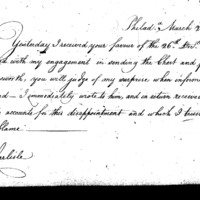 Philad.a March 2
Yesterday I received your favour of the 26th Inst.
with my engagement in sending the Chest and
, you will judge of my surprise when inform
— I immediately wrote to him, and in return received
accounts for this disappointment and which I trust
blame